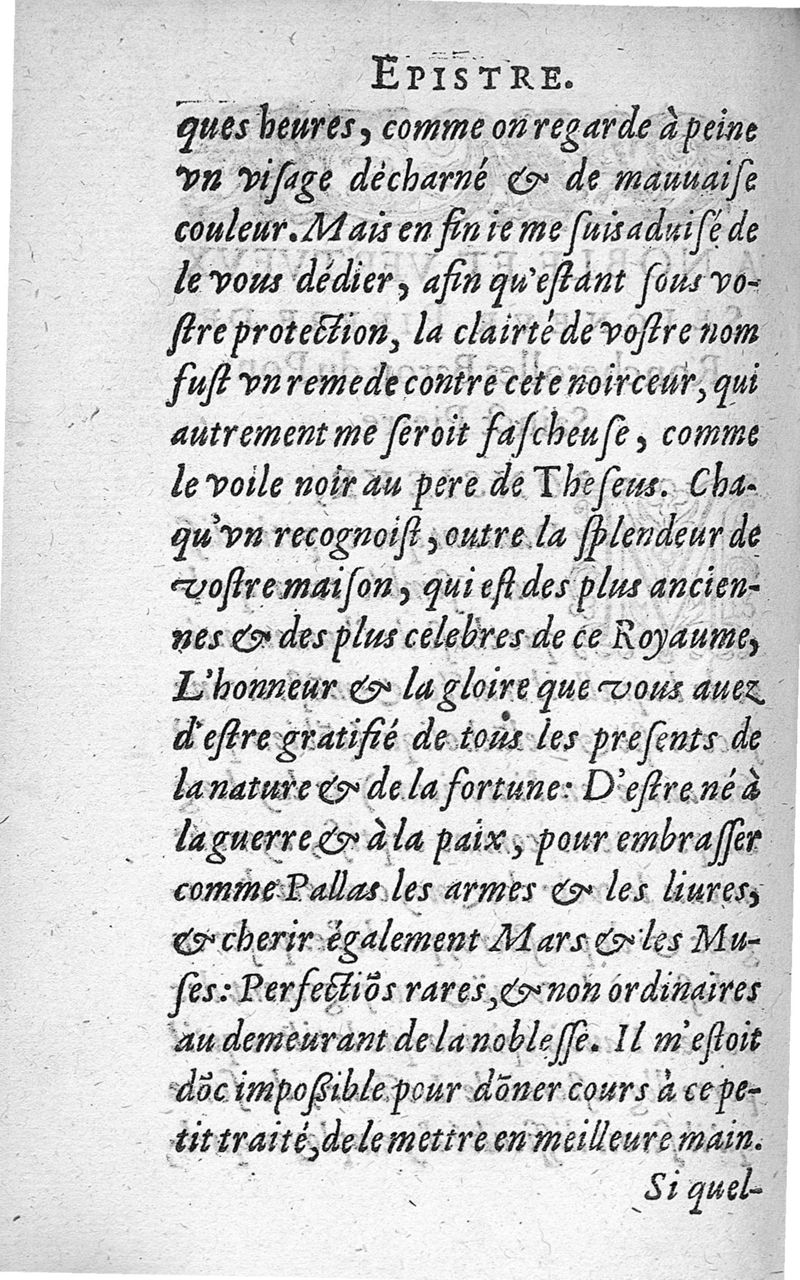 EPISTRE.
ques heures, comme on regarde à peine
vn viſage décharné & de mauuaiſe
couleur. Mais en fin ie me ſuis aduiſé de
le vous dédier, afin qu'eſtant ſous vo-
ſtre protection, la clairté de voſtre nom
fuſt vn remede contre cete noirceur, qui
autrement me ſeroit faſcheuſe, comme
le voile noir au pere de Theſeus. Cha-
qu'vn recognoiſt, outre la ſplendeur de
voſtre maiſon, qui eſt des plus ancien-
nes & des plus celebres de ce Royaume,
L'honneur & la gloire que vous auez
d'eſtre gratifié de tous les preſents de
la nature & de la fortune: D'eſtre né à
la guerre & à la paix, pour embraſſer
comme Pallas les armes & les liures,
& cherir également Mars & les Mu-
ſes: Perfectiõs rares, & non ordinaires
au demeurant de la nobleſſe. Il m'eſtoit
dõc impoßible pour dõner cours à ce pe-
tit traité, de le mettre en meilleure main.
Si quel-